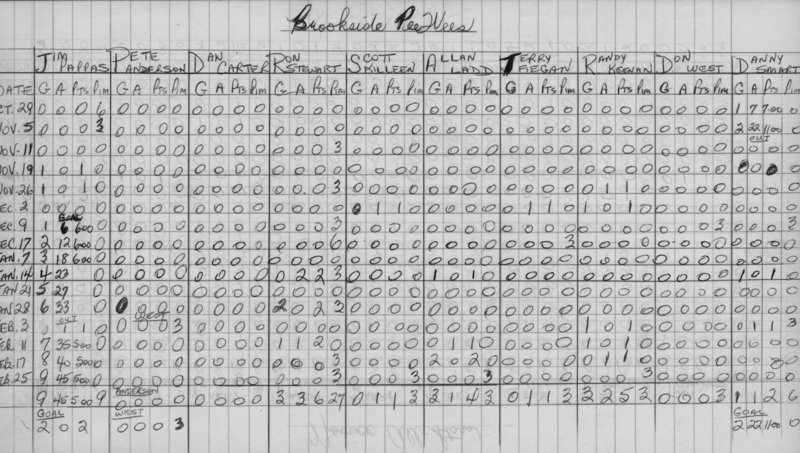 Brookside PeeWees
JIM PAPPAS PETE ANDERSON DAN CARTER RON STEWART SCOTT KILLEEN ALLAN LADD TERRY FEGAN RANDY KEENAN DON WEST DANNY SMART
DATE G A Pts Pim G A Pts Pim G A Pts Pim G A Pts Pim G A Pts Pim G A Pts Pim G A Pts Pim G A Pts Pim G A Pts Pim G A Pts Pim
CT. 29 0 0 0 6 0 0 0 0 0 0 0 0 0 0 0 0 0 0 0 0 0 0 0 0 0 0 0 0 0 0 0 0 1 7 7.00 0
NOV. 5 0 0 0 3 0 0 0 0 0 0 0 0 0 0 0 0 0 0 0 0 0 0 0 0 0 0 0 0 0 0 0 0 0 0 0 0 2 22 11.00 0
OUT
NOV. 11 0 0 0 0 0 0 0 0 0 0 0 0 0 0 0 3 0 0 0 0 0 0 0 0 0 0 0 0 0 0 0 0 0 0 0 0
NOV. 19 1 0 1 0 0 0 0 0 0 0 0 0 0 0 0 0 0 0 0 0 0 0 0 0 0 0 0 0 0 0 0 0 0 0 0 0 0 0 0 0
NOV. 26 1 0 1 0 0 0 0 0 0 0 0 0 0 0 0 3 0 0 0 0 0 0 0 0 0 0 0 0 0 1 1 0 0 0 0 0 0 0 0 0
EC. 2 0 0 0 0 0 0 0 0 0 0 0 0 0 0 0 0 0 1 1 0 0 0 0 0 0 1 1 0 1 0 1 0 0 0 0 0 0 0 0 0
GOAL
EC. 9 1 6 6.00 0 0 0 0 0 0 0 0 0 0 0 0 3 0 0 0 0 0 0 0 0 0 0 0 0 0 0 0 0 0 0 0 3 0 0 0 3
EC. 17 2 12 6.00 0 0 0 0 0 0 0 0 0 0 0 0 6 0 0 0 0 0 0 0 0 0 0 0 3 0 0 0 0 0 0 0 0 0 0 0 0
AN. 7 3 18 6.00 0 0 0 0 0 0 0 0 0 0 0 0 0 0 0 0 0 0 0 0 0 0 0 0 0 0 0 0 0 0 0 0 0 0 0 0 0
AN. 14 4 23 0 0 0 0 0 0 0 0 0 0 2 2 3 0 0 0 0 1 0 1 0 0 0 0 0 0 0 0 0 0 0 0 0 1 0 1 0
AN 21 5 27 0 0 0 0 0 0 0 0 0 0 0 0 0 0 0 0 0 0 0 0 0 0 0 0 0 0 0 0 0 0 0 0 0 0 0 0 0
AN 28 6 33 0 0 0 0 0 0 0 0 0 2 0 2 3 0 0 0 0 0 0 0 0 0 0 0 0 0 0 0 0 0 0 0 0 0 0 0 0
OUT WEST
EB. 3 0 1 1 0 0 0 0 3 0 0 0 0 0 0 0 0 0 0 0 0 0 0 0 0 0 0 0 0 1 0 1 0 0 0 0 0 0 1 1 3
EB. 11 7 35 5.00 0 0 0 0 0 0 0 0 0 1 1 2 0 0 0 0 0 0 1 1 0 0 0 0 0 1 0 1 0 0 0 0 0 0 0 0 0
EB. 17 8 40 5.00 0 0 0 0 0 0 0 0 0 0 0 0 3 0 0 0 0 2 0 2 0 0 0 0 0 0 1 1 0 0 0 0 0 0 0 0 0
EB. 25 9 45 5.00 0 0 0 0 0 0 0 0 0 0 0 0 3 0 0 0 3 0 0 0 3 0 0 0 0 0 0 0 3 0 0 0 0 0 0 0 0
ANDERSON
9 45 5.00 9 0 0 0 0 0 0 0 0 3 3 6 27 0 1 1 3 3 1 4 3 0 1 1 3 3 2 5 3 0 0 0 3 1 1 2 6
GOAL WEST GOAL
2 0 2 0 0 0 3 2 22 11.00 0